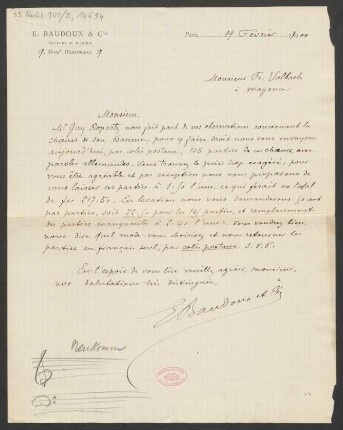 55 Nachl. 100/B, 14694
E. BAUDOUX & Cie
Paris, 19 Février 1900
Monsieur Fr. Volbach
à Mayence
Monsieur,
Mr Guy Ropartz nous fait part de vos observations concernant les
chœurs de son Psaume, pour y faire droit nous vous envoyons
aujourd'hui, par colis postaux, 145 parties de ces chœurs avec
paroles allemandes. Vous trouvez le prix trop exagéré, pour
vous être agréable et par exception nous vous proposons de
vous laisser ces parties à 1.50 l'une, ce qui ferait au total
de fcs 217.50. En location nous vous demanderions 50 cent
par parties, soit 72.50 pour les 145 parties, et remplacement
des parties manquantes à l'une. Vous voudrez bien
nous dire quel mode vous choisirez et nous retourner les
parties en français seul, par colis postaux s.v.p.
En l'espoir de vous lire veuillez agréer, monsieur,
nos salutations très distinguées.
E Baudoux et Cie